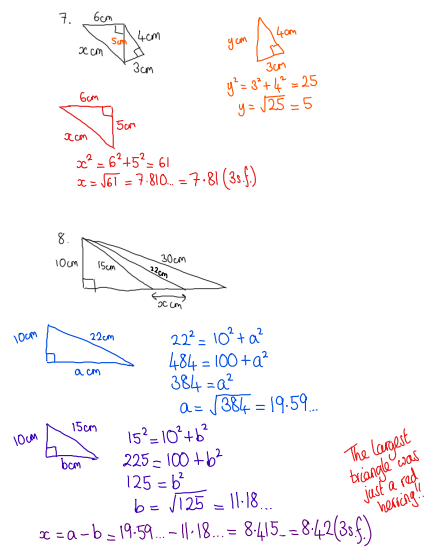 7.
6cm
5cm
4cm
x cm
3cm
y cm
4cm
3cm
y² = 3² + 4² = 25
y = √25 = 5
6cm
5cm
x cm
x² = 6² + 5² = 61
x = √61 = 7.810... = 7.81 (3s.f.)
8.
10cm
15cm
22cm
30cm
x cm
10cm
22cm
a cm
22² = 10² + a²
484 = 100 + a²
384 = a²
a = √384 = 19.59...
10cm
15cm
bcm
15² = 10² + b²
225 = 100 + b²
125 = b²
b = √125 = 11.18...
The largest
triangle was
just a red
herring!!
x = a - b = 19.59... - 11.18... = 8.415... = 8.42 (3s.f.)